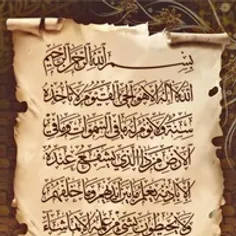 بِسْمِ اللهِ الرَّحْمٰنِ الرَّحِيْمِ
اَللهُ لَآ اِلٰهَ اِلَّا هُوَ الْحَيُّ الْقَيُّوْمُ لَا تَأْخُذُهٗ
سِنَةٌ وَّلَا نَوْمٌ لَهٗ مَا فِي السَّمٰوٰتِ وَمَا فِي
الْاَرْضِ مَنْ ذَا الَّذِيْ يَشْفَعُ عِنْدَهٗٓ
اِلَّا بِاِذْنِهٖ يَعْلَمُ مَا بَيْنَ اَيْدِيْهِمْ وَمَا خَلْفَهُمْ
وَلَا يُحِيْطُوْنَ بِشَيْءٍ مِّنْ عِلْمِهٖٓ اِلَّا بِمَا شَآءَ